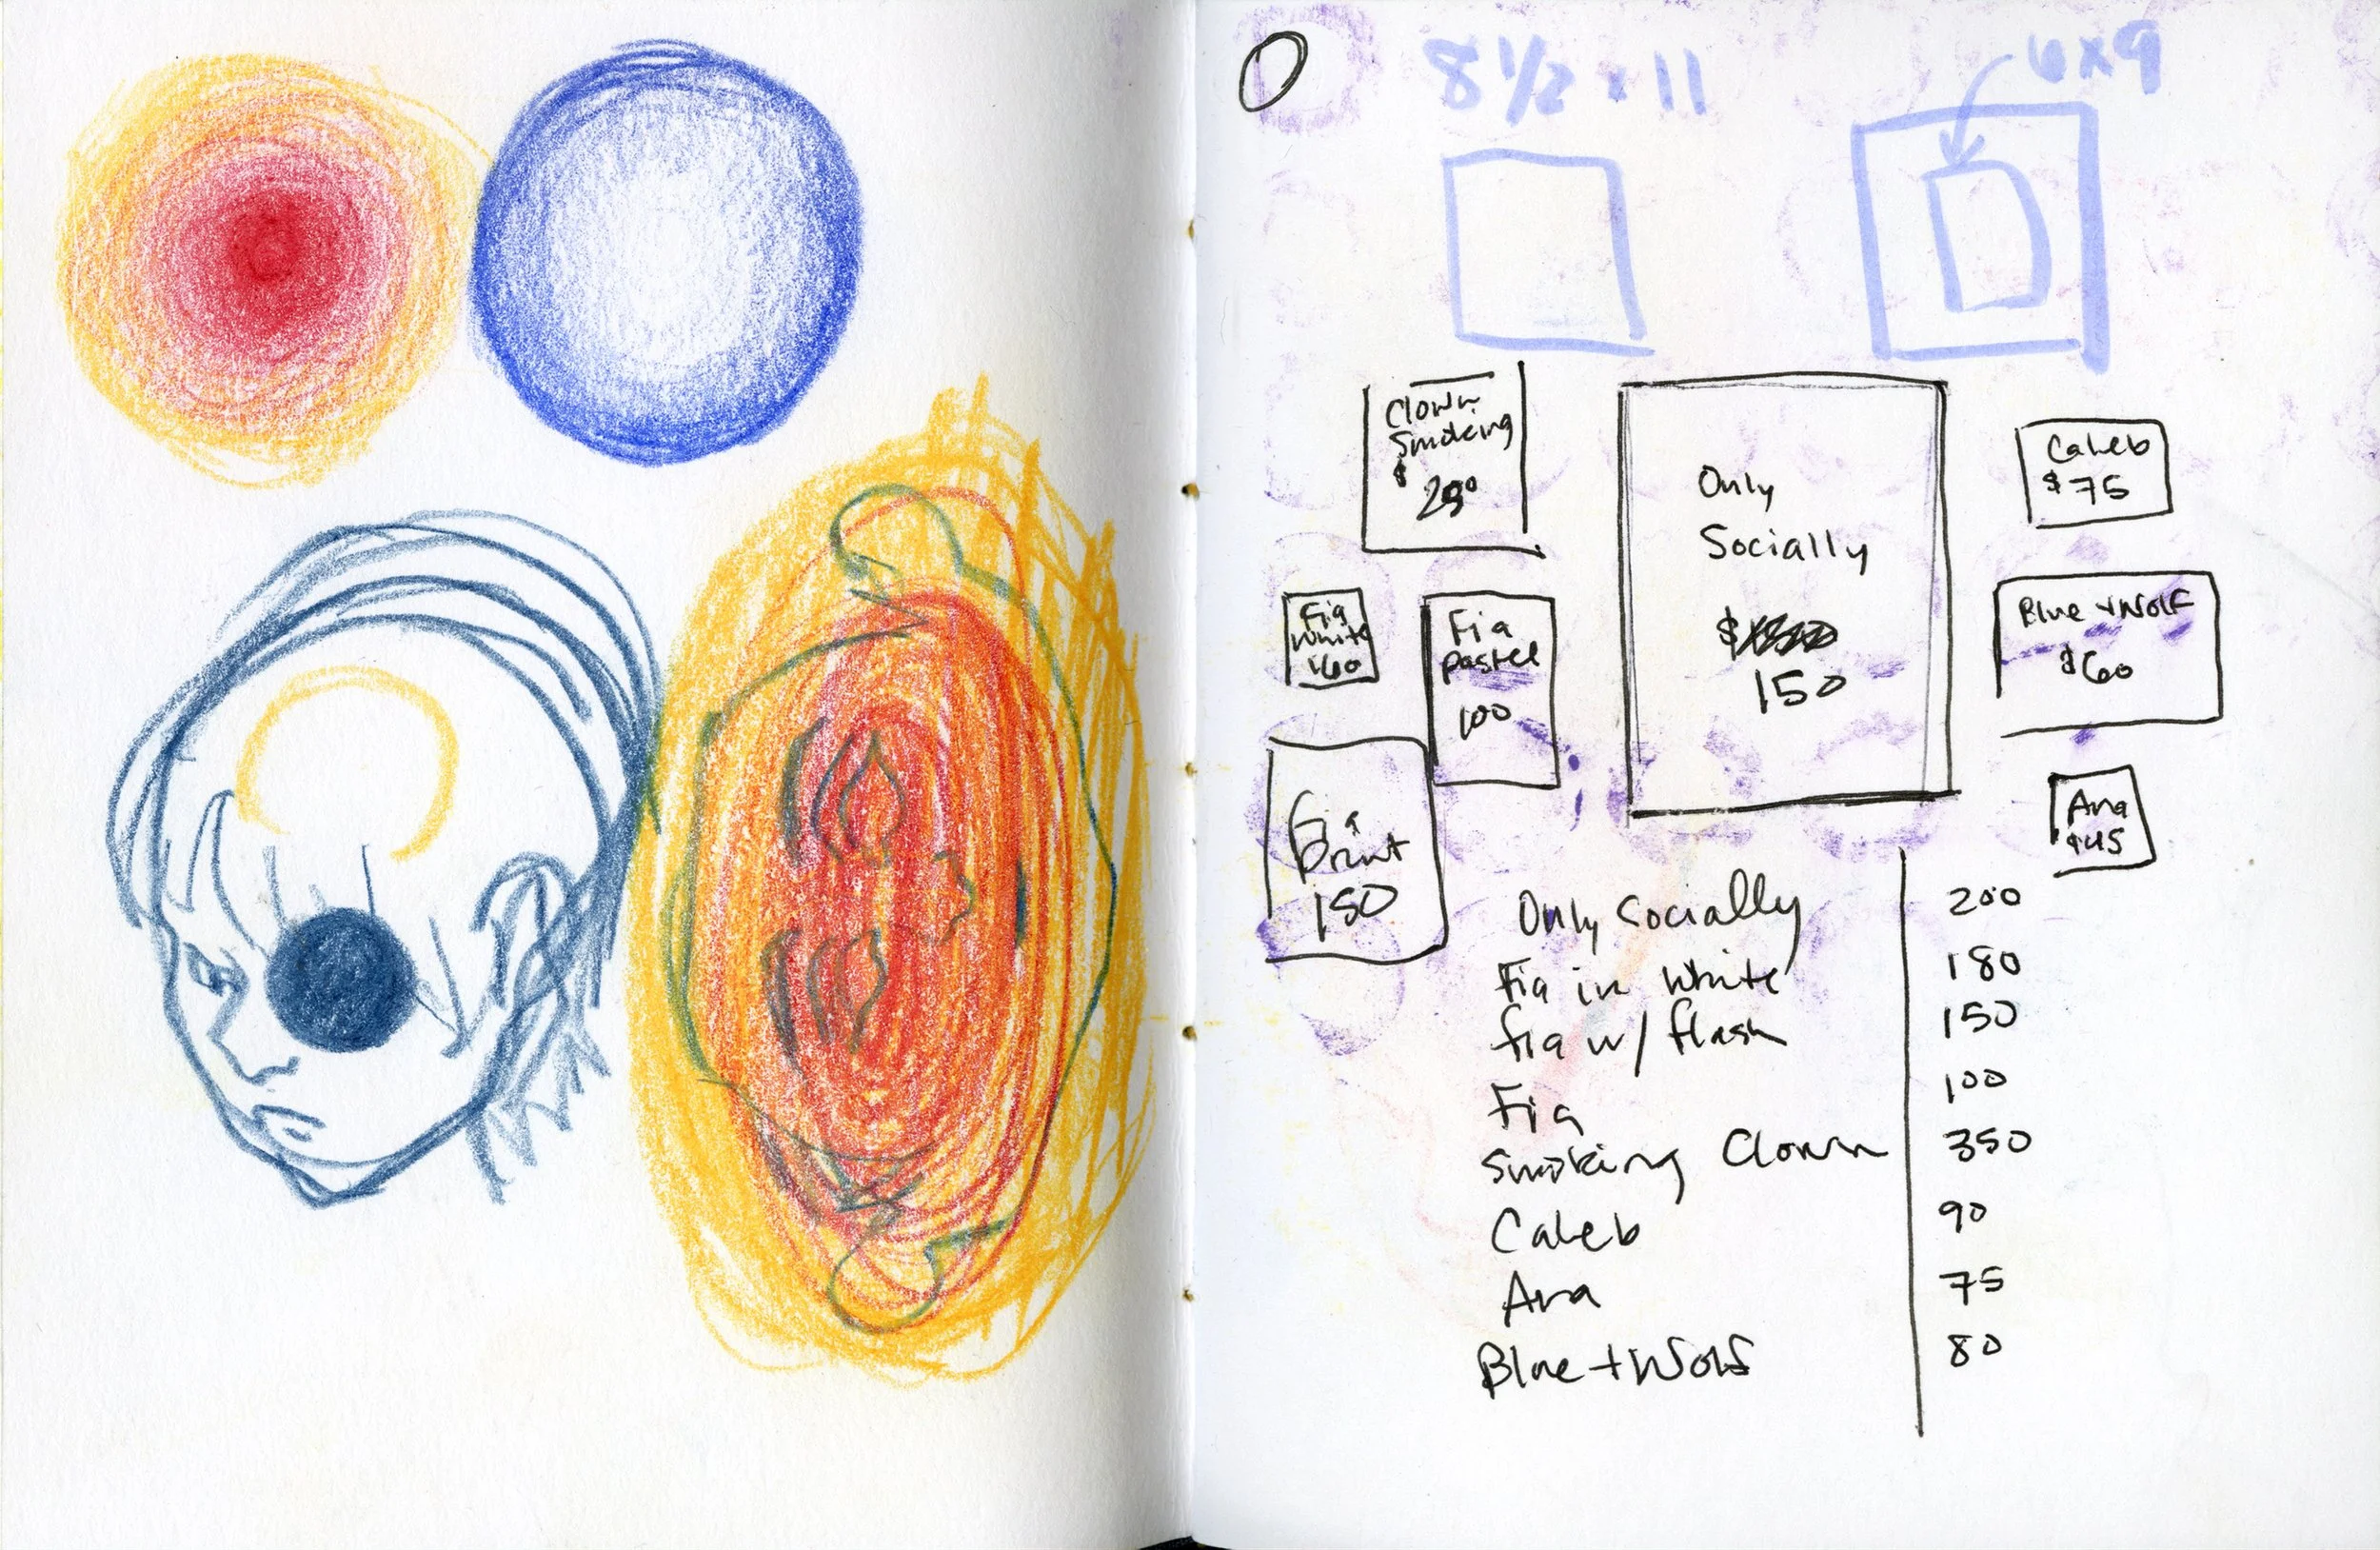 8 1/2 x 11
6 x 9
Clown
Smoking
$
Only
Socially
$
150
Caleb
$75
Fia
White
$60
Fia
Pastel
100
Blue + Wolf
$60
Fia
Print
150
Ana
$45
Only Socially 200
Fia in White 180
Fia w/ flash 150
Fia 100
Smoking Clown 350
Caleb 90
Ana 75
Blue + Wolf 80